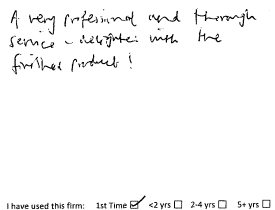 A very professional and thorough
service - delighted with the
finished product!
I have used this firm: 1st Time ☑ <2 yrs ☐ 2-4 yrs ☐ 5+ yrs ☐